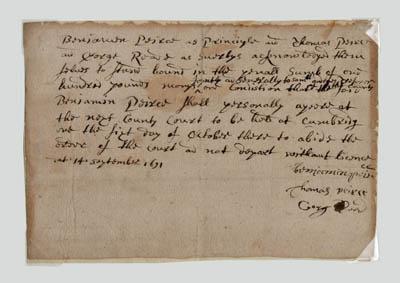 Benjamen Peirce as Principle and Thomas Peirce
and George Reade as suertys acknowledged them
selves to stand bound in the penall Sume of one
joyntly and severally to
hundred pounds mony one Condition that the said
Benjamen Peirce shall personally apeare at
the next County Court to be held at Cambridg
one the first day of October there to abide the
order of the court and not depart without licence
at 14 september 1691
benjeming peirs
Thomas peirce
Georg